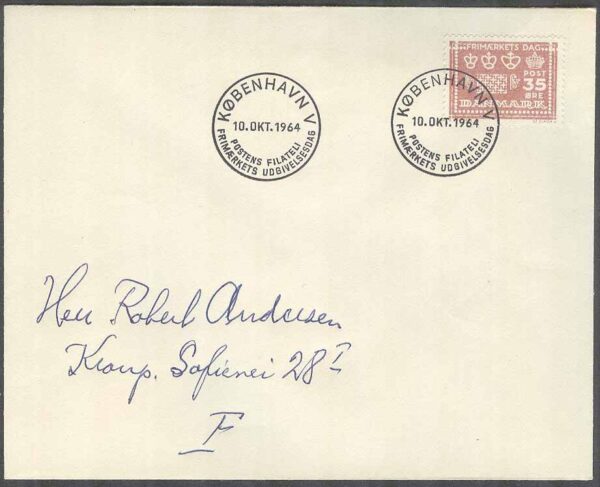 FRIMÆRKETS DAG
POST
35
ØRE
DANMARK
KØBENHAVN V
10.OKT.1964
POSTENS FILATELI
FRIMÆRKETS UDGIVELSESDAG
KØBENHAVN V
10.OKT.1964
POSTENS FILATELI
FRIMÆRKETS UDGIVELSESDAG
Herr Robert Andersen
Kronp. Sofievei 28 I
F